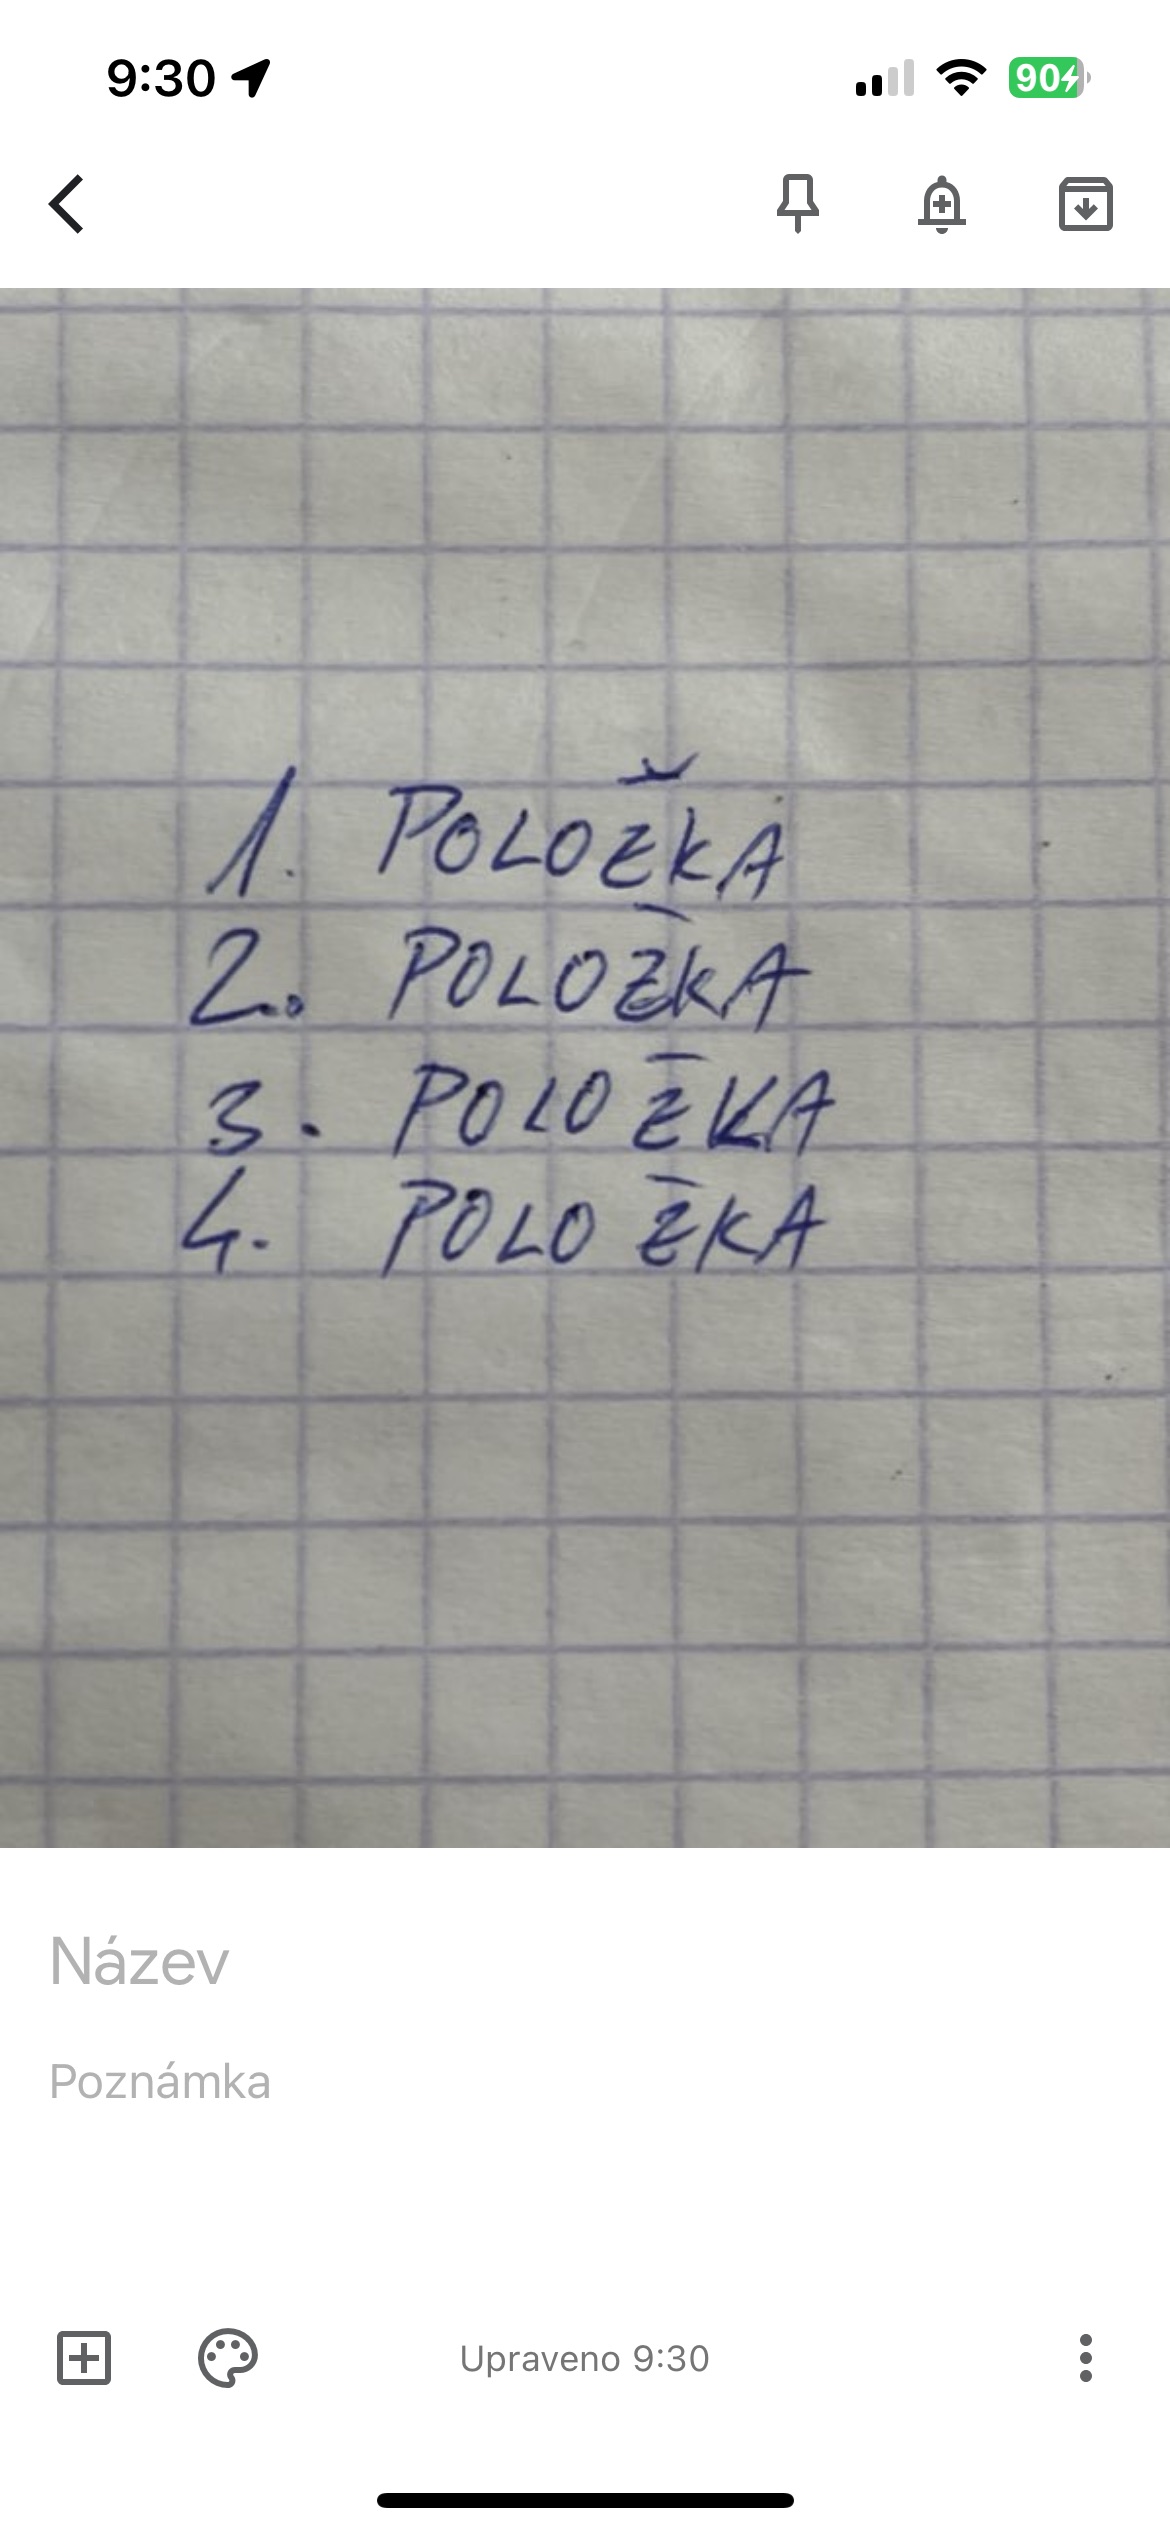 9:30
90
1. POLOŽKA
2. POLOŽKA
3. POLOŽKA
4. POLOŽKA
Název
Poznámka
Upraveno 9:30